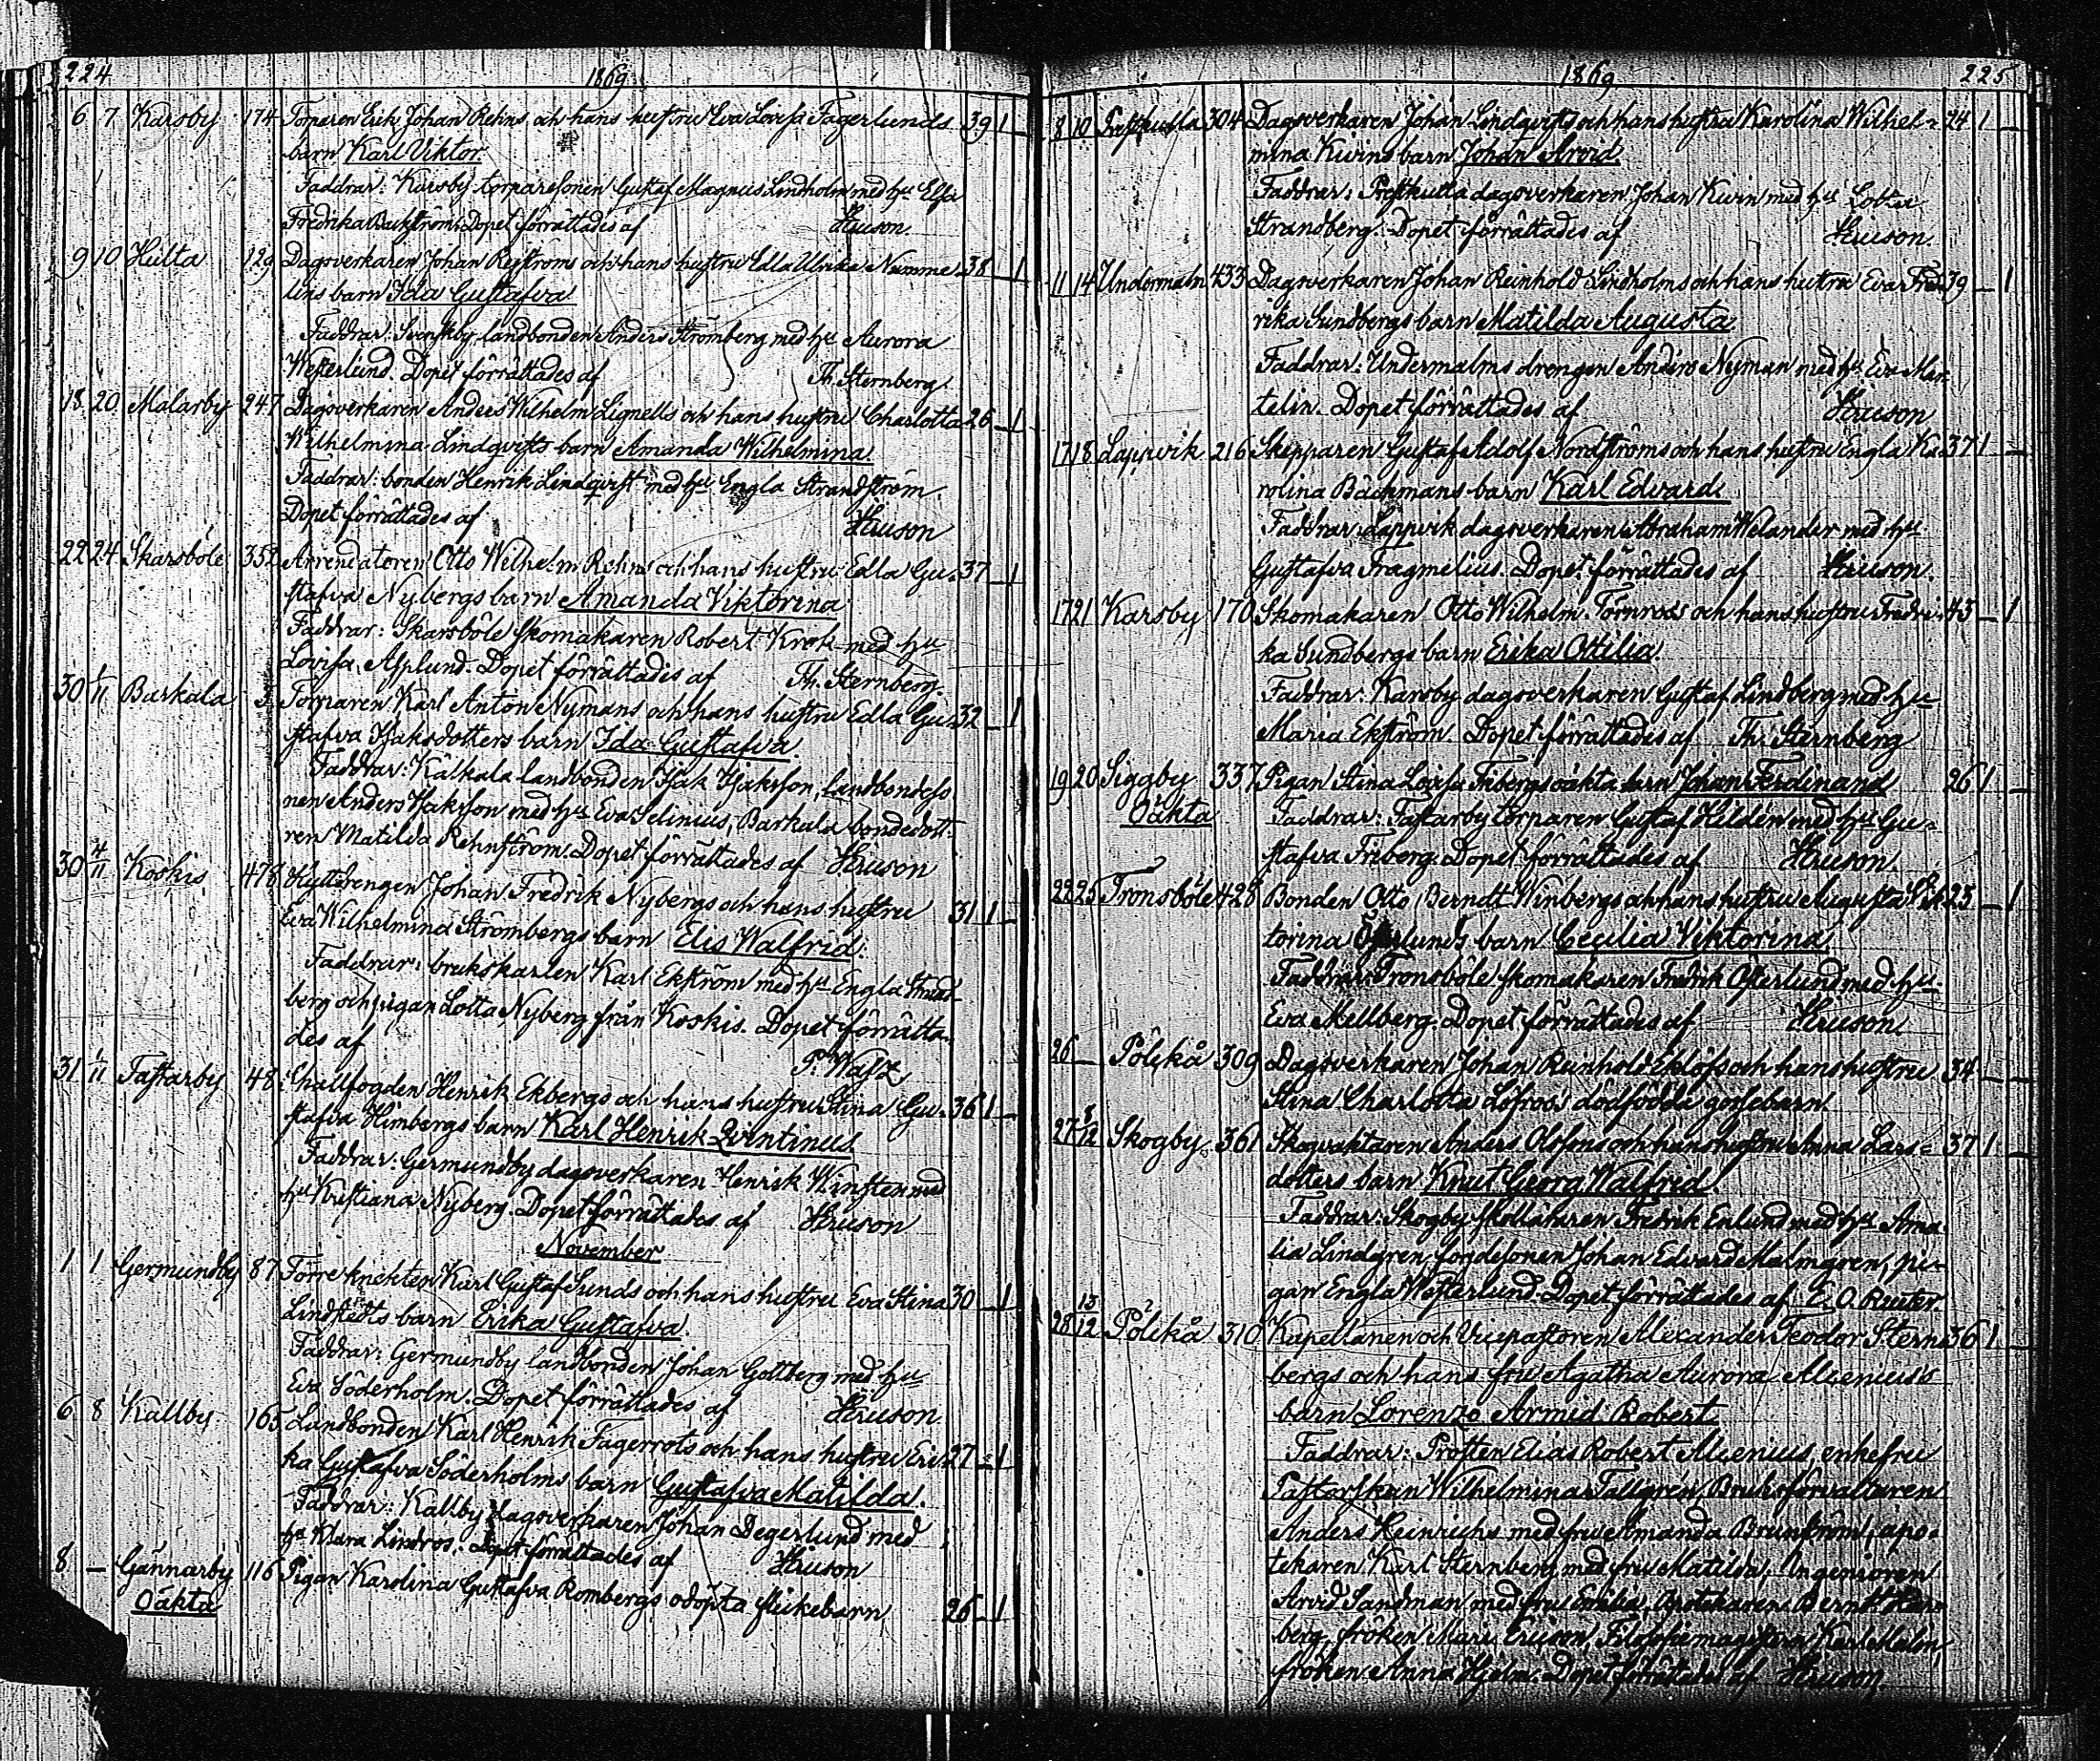 224 1869
6 7 Karsby 174 Torparen Erik Johan Rehns och hans hustru Eva Lovisa Fagerlunds 39 1 —
barn Karl Viktor.
Faddrar: Karsby torparesonen Gustaf Magnus Lindholm med hu Elsa
Fredrika Dopet förrättades af Hruson.
9 10 Hulta 129 Dagsverkaren Johan Rejströms och hans hustru Edla Ulrika Numme- 38 — 1
lins barn Ida Gustafva
Faddrar: Svenskby landbonden Anders Strömberg med hu Aurora
Westerlund. Dopet förrättades af Th. Sternberg
18 20 Malarby 247 Dagsverkaren Anders Wilhelm Lignells och hans hustru Charlotta 26 — 1
Wilhelmina Lindqvists barn Amanda Wilhelmina.
Faddrar: bonden Henrik Lindqvist med hu Engla Strandström.
Dopet förrättades af Hruson
22 24 Skarsböle 352 Arrendatoren Otto Wilhelm Rehns och hans hustru Edla Gu- 37 — 1
stafva Nybergs barn Amanda Viktorina
Faddrar: Skarsböle skomakaren Robert Krok med hu
Lovisa Asplund. Dopet förrättades af Th. Sternberg.
30 1/11 Barkala 3 Torparen Karl Anton Nymans och hans hustru Edla Gu- 32 — 1
stafva Isaksdotters barn Ida Gustafva
Faddrar: Kalkala landbonden Isak Isaksson, landbondeso
nen Anders Isaksson med hu Eva Selinius, Barkala bondedott-
ren Matilda Rehnström. Dopet förrättades af Hruson
30 4/11 Koskis 478 Hyttdrengen Johan Fredrik Nybergs och hans hustru 31 1 —
Eva Wilhelmina Strömbergs barn Elis Walfrid.
Faddrar: brukskarlen Karl Ekström med hu Engla
berg och pigan Lotta Nyberg från Koskis. Dopet förrätta-
des af P. Wasz
31 1/11 Fastarby 48 Stallfogden Henrik Ekbergs och hans hustru Stina Gu- 36 1 —
stafva Himbergs barn Karl Henrik Qvintinus
Faddrar: Germundby dagsverkaren Henrik Winsten med
hu Kristiana Nyberg. Dopet förrättades af Hruson
November
1 1 Germundby 87 Förre knekten Karl Gustaf Sunds och hans hustru Eva Stina 30 — 1
Lindstedts barn Erika Gustafva.
Faddrar: Germundby landbonden Johan Gottberg med hu
Eva Söderholm. Dopet förrättades af Hruson
6 8 Källby 165 Landbonden Karl Henrik Fagerrots och hans hustru Eri- 27 — 1
ka Gustafva Söderholms barn Gustafva Matilda.
Faddrar: Källby dagsverkaren Johan Degerlund med
hu Klara Lindros. Dopet förrättades af Hruson
8 — Gännarby 116 Pigan Karolina Gustafva Rombergs odöpta flickebarn 26 — 1
Oäkta
1869 225
8 10 Prestkulla 304 Dagsverkaren Johan Lindqvists och hans hustru Karolina Wilhel- 24 1 —
mina Kuvins barn Johan Arvid.
Faddrar: Prestkulla dagsverkaren Johan Kuvin med hu Lovisa
Strandberg. Dopet förrättades af Hruson.
11 14 Undermalm 433 Dagsverkaren Johan Reinhold Lindholms och hans hustru Eva Fred- 39 — 1
rika Sundbergs barn Matilda Augusta.
Faddrar: Undermalms drengen Anders Nyman med hu Eva Mar
telin. Dopet förrättades af Hruson
17 18 Lappvik 216 Skepparen Gustaf Adolf Nordströms och hans hustru Engla Ka- 37 1 —
rolina Bäckmans barn Karl Edvard.
Faddrar: Lappvik dagsverkaren Abraham Welander med hu
Gustafva Fragmelius. Dopet förrättades af Hruson.
17 21 Karsby 170 Skomakaren Otto Wilhelm Törnroos och hans hustru Fredri- 43 — 1
ka Sundbergs barn Erika Ottilia.
Faddrar: Karsby dagsverkaren Gustaf Lindberg med hu
Maria Ekström. Dopet förrättades af Th. Sternberg
19 20 Siggby 337 Pigan Stina Lovisa Fribergs oäkta barn Johan Ferdinand 26 1 —
Oäkta Faddrar: Fastarby torparen Gustaf Hildén med hu Gu-
stafva Friberg. Dopet förrättades af Hruson.
22 25 Tronsböle 428 Bonden Otto Berndt Winbergs och hans hustru Augusta Vik 23 — 1
torina Österlunds barn Cecilia Viktorina.
Faddrar: Tronsböle skomakaren Fredrik Österlund med hu
Eva Mellberg. Dopet förrättades af Hruson
26 — Pölekå 309 Dagsverkaren Johan Reinhold Eklöfs och hans hustru 34 — —
Stina Charlotta Löfroos dödfödda gossebarn.
27 8/12 Skogby 361 Skogvaktaren Anders Olofsons och hans hustru Anna Lars- 37 1 —
dotters barn Knut Georg Walfrid.
Faddrar: Skogby skolläraren Fredrik Enlund med hu Ama
lia Lindgren, fogdesonen Johan Edvard Malmgren, pi-
gan Engla Westerlund. Dopet förrättades af E. O. Reuter.
28 13/12 Pölekå 310 Kapellanen och Vicepastoren Alexander Teodor Stern- 36 1 —
bergs och hans fru Agatha Aurora Alcenius's
barn Lorenzo Armid Robert
Faddrar: Prosten Elias Robert Alcenius, enkefru
Pastorskan Wilhelmina Tallgrén, Bruksförvaltaren
Anders Heinrichs med fru Amanda Brunström, apo-
tekaren Karl Sternberg med fru Matilda, Ingeniören
Arvid Sandman med fru Emilia, Apotekaren Berndt
berg, fröken Mari Ericson, Filosofiemagistern Karl
fröken Anna Hjelm. Dopet förrättades af Hruson.